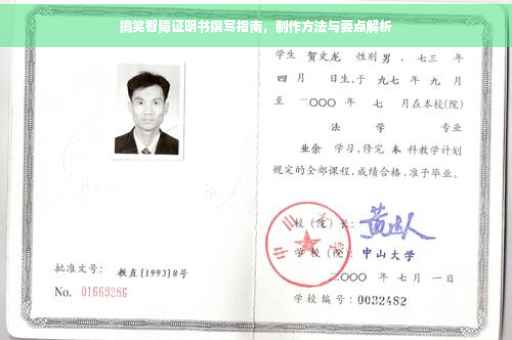 搞笑智障证明书撰写指南，制作方法与要点解析
学生 贺文龙 性别 男，七三 年
四 月 日生，于 九七 年 九 月
至 二〇〇〇 年 七 月在本校(院)
法 学 专业
业余 学习，修完 本 科教学计划
规定的全部课程，成绩合格，准予毕业。
校 (院) 长：
学 校 (院)： 中山大学
二〇〇〇 年 七 月 一 日
学校编号：0032482
批准文号： 教直(1993)8号
No. 01669286